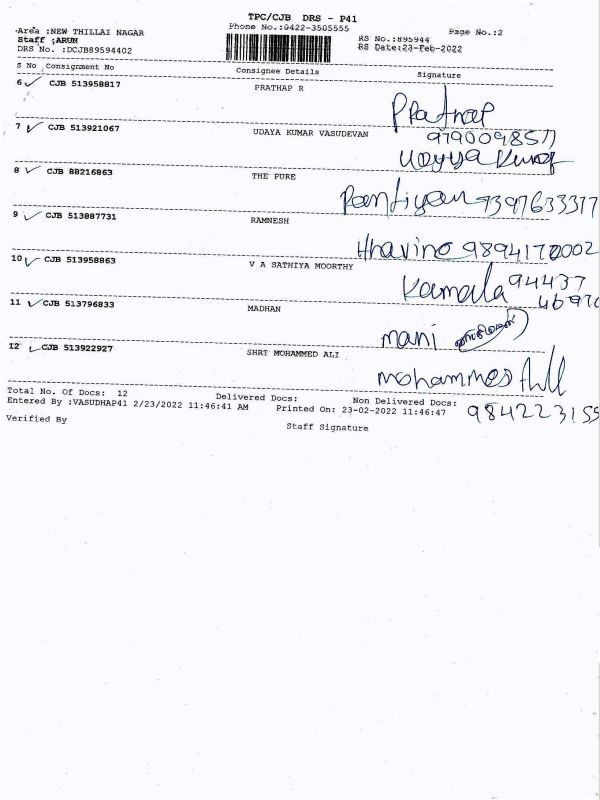 TPC/CJB DRS - P41
Area :NEW THILLAI NAGAR Phone No.:0422-3505555 Page No.:2
Staff :ARUN RS No.:895944
DRS No. :DCJB89594402 RS Date:23-Feb-2022
S No Consignment No Consignee Details Signature
6 ✓ CJB 513958817 PRATHAP R Prathap
9790098577
7 ✓ CJB 513921067 UDAYA KUMAR VASUDEVAN Udaya Kumar
8 ✓ CJB 88216863 THE PURE Pantiyan 7397633377
9 ✓ CJB 513887731 RAMNESH 9894170002
10 ✓ CJB 513958863 V A SATHIYA MOORTHY Kamala 94437
46976
11 ✓ CJB 513796833 MADHAN mani
12 ✓ CJB 513922927 SHRI MOHAMMED ALI mohammes
Total No. Of Docs: 12 Delivered Docs: Non Delivered Docs:
Entered By :VASUDHAP41 2/23/2022 11:46:41 AM Printed On: 23-02-2022 11:46:47 984223155
Verified By Staff Signature